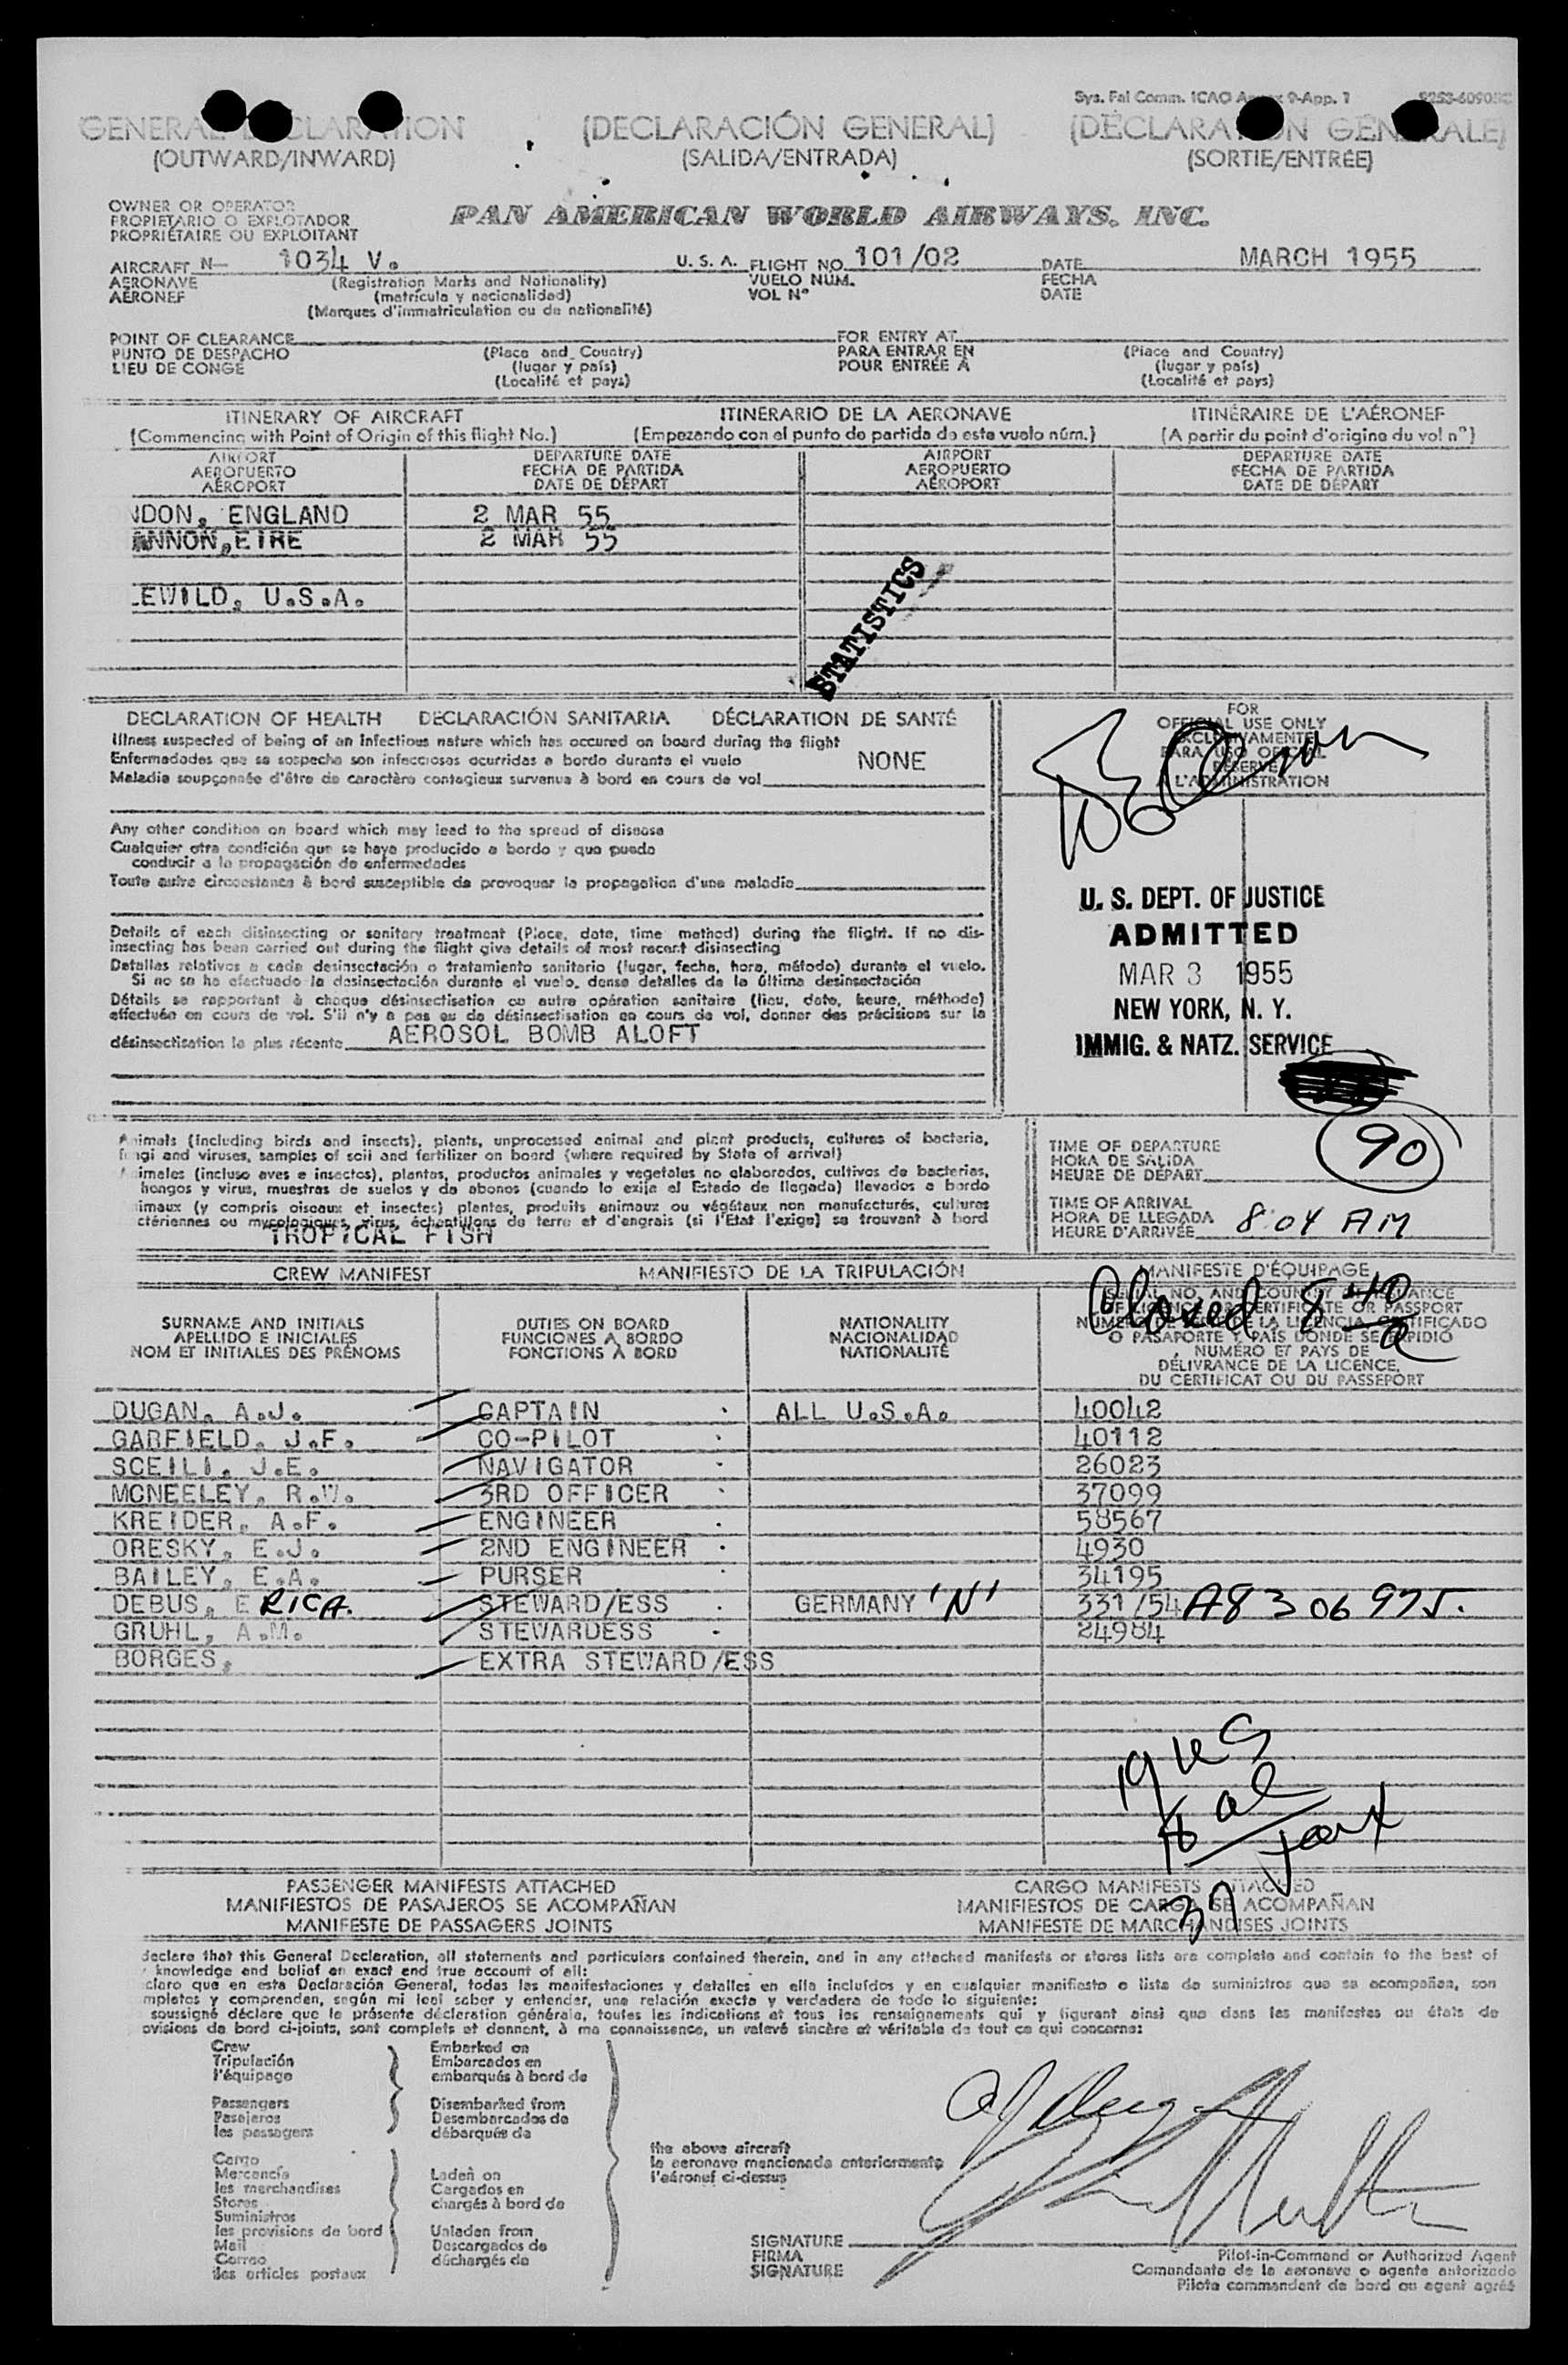 Sys. Fal Comm. ICAO Annex 9-App. 1
GENERAL DECLARATION (DECLARACIÓN GENERAL) (DÉCLARATION GÉNÉRALE)
(OUTWARD/INWARD) (SALIDA/ENTRADA) (SORTIE/ENTRÉE)
OWNER OR OPERATOR
PROPIETARIO O EXPLOTADOR
PROPRIÉTAIRE OU EXPLOITANT
PAN AMERICAN WORLD AIRWAYS, INC.
AIRCRAFT N- 1034 V. U. S. A. FLIGHT NO. 101/02 DATE MARCH 1955
AERONAVE (Registration Marks and Nationality) VUELO NÚM. FECHA
AÉRONEF (matrícula y nacionalidad) VOL Nº DATE
(Marques d'immatriculation ou de nationalité)
POINT OF CLEARANCE FOR ENTRY AT
PUNTO DE DESPACHO (Place and Country) PARA ENTRAR EN (Place and Country)
LIEU DE CONGÉ (lugar y país) POUR ENTRÉE À (lugar y país)
(Localité et pays) (Localité et pays)
ITINERARY OF AIRCRAFT ITINERARIO DE LA AERONAVE ITINÉRAIRE DE L'AÉRONEF
(Commencing with Point of Origin of this flight No.) (Empezando con el punto de partida de este vuelo núm.) (A partir du point d'origine du vol nº)
AIRPORT DEPARTURE DATE AIRPORT DEPARTURE DATE
AEROPUERTO FECHA DE PARTIDA AEROPUERTO FECHA DE PARTIDA
AÉROPORT DATE DE DÉPART AÉROPORT DATE DE DÉPART
NDON, ENGLAND 2 MAR 55
ANNON,EIRE 2 MAR 55
LEWILD, U.S.A.
STATISTICS
DECLARATION OF HEALTH DECLARACIÓN SANITARIA DÉCLARATION DE SANTÉ
Illness suspected of being of an infectious nature which has occured on board during the flight
Enfermedades que se sospecha son infecciosas ocurridas a bordo durante el vuelo NONE
Maladie soupçonnée d'être de caractère contagieux survenue à bord en cours de vol
Any other condition on board which may lead to the spread of disease
Cualquier otra condición que se haya producido a bordo y que pueda
conducir a la propagación de enfermedades
Toute autre circonstance à bord susceptible de provoquer la propagation d'une maladie
Details of each disinsecting or sanitary treatment (Place, date, time method) during the flight. If no dis-
insecting has been carried out during the flight give details of most recent disinsecting
Detalles relativos a cada desinsectación o tratamiento sanitario (lugar, fecha, hora, método) durante el vuelo.
Si no se ha efectuado la desinsectación durante el vuelo, dense detalles de la última desinsectación
Détails se rapportant à chaque désinsectisation ou autre opération sanitaire (lieu, date, heure, méthode)
effectuée en cours de vol. S'il n'y a pas eu de désinsectisation en cours de vol, donner des précisions sur la
désinsectisation la plus récente AEROSOL BOMB ALOFT
FOR
OFFICIAL USE ONLY
EXCLUSIVAMENTE
PARA USO OFICIAL
RÉSERVÉ
À L'ADMINISTRATION
U. S. DEPT. OF JUSTICE
ADMITTED
MAR 3 1955
NEW YORK, N. Y.
IMMIG. & NATZ. SERVICE
90
Animals (including birds and insects), plants, unprocessed animal and plant products, cultures of bacteria,
fungi and viruses, samples of soil and fertilizer on board (where required by State of arrival)
Animales (incluso aves e insectos), plantas, productos animales y vegetales no elaborados, cultivos de bacterias,
hongos y virus, muestras de suelos y de abonos (cuando lo exija el Estado de llegada) llevados a bordo
imaux (y compris oiseaux et insectes) plantes, produits animaux ou végétaux non manufacturés, cultures
ctériennes ou mycologiques, virus, échantillons de terre et d'engrais (si l'État l'exige) se trouvant à bord
TROPICAL FISH
TIME OF DEPARTURE
HORA DE SALIDA
HEURE DE DÉPART
TIME OF ARRIVAL
HORA DE LLEGADA
HEURE D'ARRIVÉE 8:04 AM
CREW MANIFEST MANIFIESTO DE LA TRIPULACIÓN MANIFESTE D'ÉQUIPAGE
Closed 8 40 a
SURNAME AND INITIALS DUTIES ON BOARD NATIONALITY SERIAL NO. AND COUNTRY OF ISSUANCE
APELLIDO E INICIALES FUNCIONES A BORDO NACIONALIDAD OF LICENCE OR CERTIFICATE OR PASSPORT
NOM ET INITIALES DES PRÉNOMS FONCTIONS À BORD NATIONALITÉ NÚMERO DE SERIE DE LA LICENCIA, CERTIFICADO
O PASAPORTE Y PAÍS DONDE SE EXPIDIÓ
NUMÉRO ET PAYS DE
DÉLIVRANCE DE LA LICENCE,
DU CERTIFICAT OU DU PASSEPORT
DUGAN, A.J. CAPTAIN ALL U.S.A. 40042
GARFIELD, J.F. CO-PILOT 40112
SCEILI, J.E. NAVIGATOR 26023
MCNEELEY, R.W. 3RD OFFICER 37099
KREIDER, A.F. ENGINEER 58567
ORESKY, E.J. 2ND ENGINEER 4930
BAILEY, E.A. PURSER 34195
DEBUS, E RICA. STEWARD/ESS GERMANY 'N' 331/54 A8 306 975.
GRUHL, A.M. STEWARDESS 24984
BORGES, EXTRA STEWARD/ESS
19 US
18 al
37
PASSENGER MANIFESTS ATTACHED CARGO MANIFESTS ATTACHED
MANIFIESTOS DE PASAJEROS SE ACOMPAÑAN MANIFIESTOS DE CARGA SE ACOMPAÑAN
MANIFESTE DE PASSAGERS JOINTS MANIFESTE DE MARCHANDISES JOINTS
declare that this General Declaration, all statements and particulars contained therein, and in any attached manifests or stores lists are complete and contain to the best of
knowledge and belief an exact and true account of all:
claro que en esta Declaración General, todas las manifestaciones y detalles en ella incluídos y en cualquier manifiesto o lista de suministros que se acompañan, son
mpletos y comprenden, según mi leal saber y entender, una relación exacta y verdadera de todo lo siguiente:
soussigné déclare que la présente déclaration générale, toutes les indications et tous les renseignements qui y figurent ainsi que dans les manifestes ou états de
ovisions de bord ci-joints, sont complets et donnent, à ma connaissance, un relevé sincère et véritable de tout ce qui concerne:
Crew Embarked on
Tripulación Embarcados en
l'équipage embarqués à bord de
Passengers Disembarked from
Pasajeros Desembarcados de
les passagers débarqués de
the above aircraft
la aeronave mencionada anteriormente
l'aéronef ci-dessus
Cargo
Mercancía Laden on
les marchandises Cargados en
Stores chargés à bord de
Suministros
les provisions de bord Unladen from
Mail Descargados de
Correo déchargés de
les articles postaux
SIGNATURE
FIRMA
SIGNATURE
Pilot-in-Command or Authorized Agent
Comandante de la aeronave o agente autorizado
Pilote commandant de bord ou agent agréé